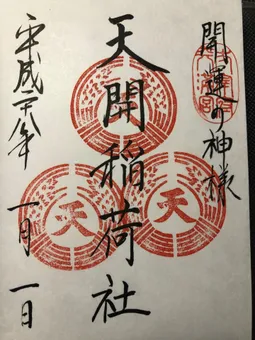 開運の神様
天開稲荷社
平成二十八年 一月 一日
天
天